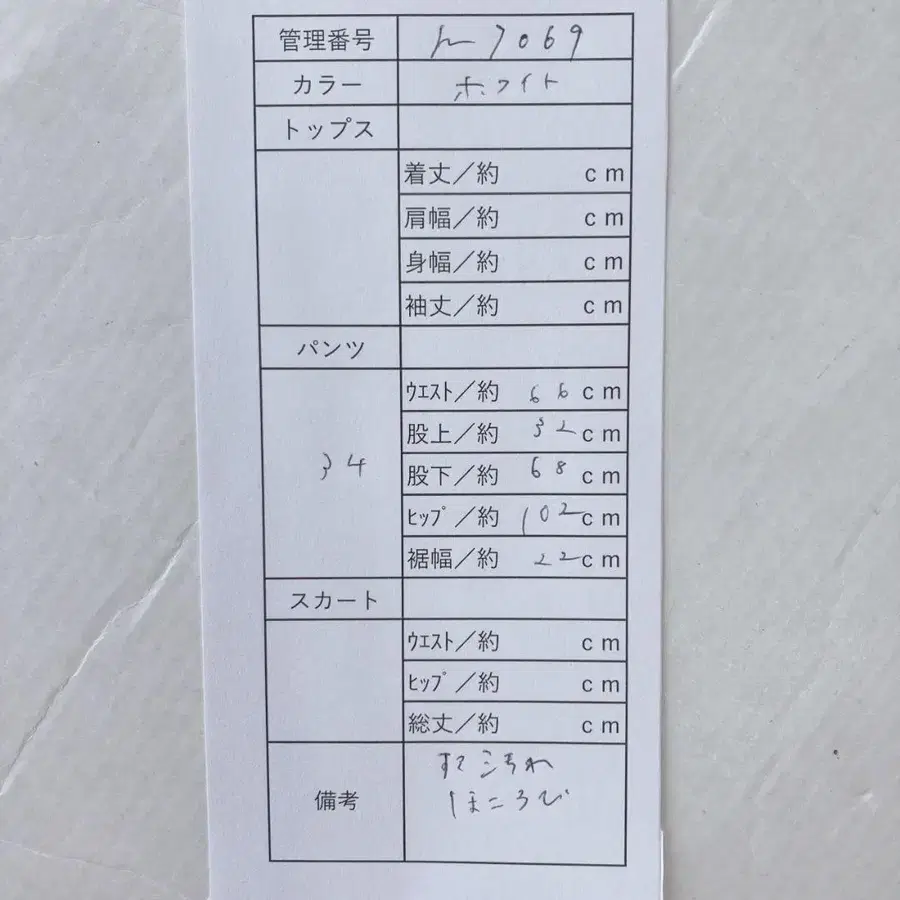 管理番号 h7069
カラー ホワイト
トップス
着丈／約 cm
肩幅／約 cm
身幅／約 cm
袖丈／約 cm
パンツ
34
ｳｴｽﾄ／約 66cm
股上／約 32cm
股下／約 68cm
ﾋｯﾌﾟ／約 102cm
裾幅／約 22cm
スカート
ｳｴｽﾄ／約 cm
ﾋｯﾌﾟ／約 cm
総丈／約 cm
備考
汚れ
ほころび